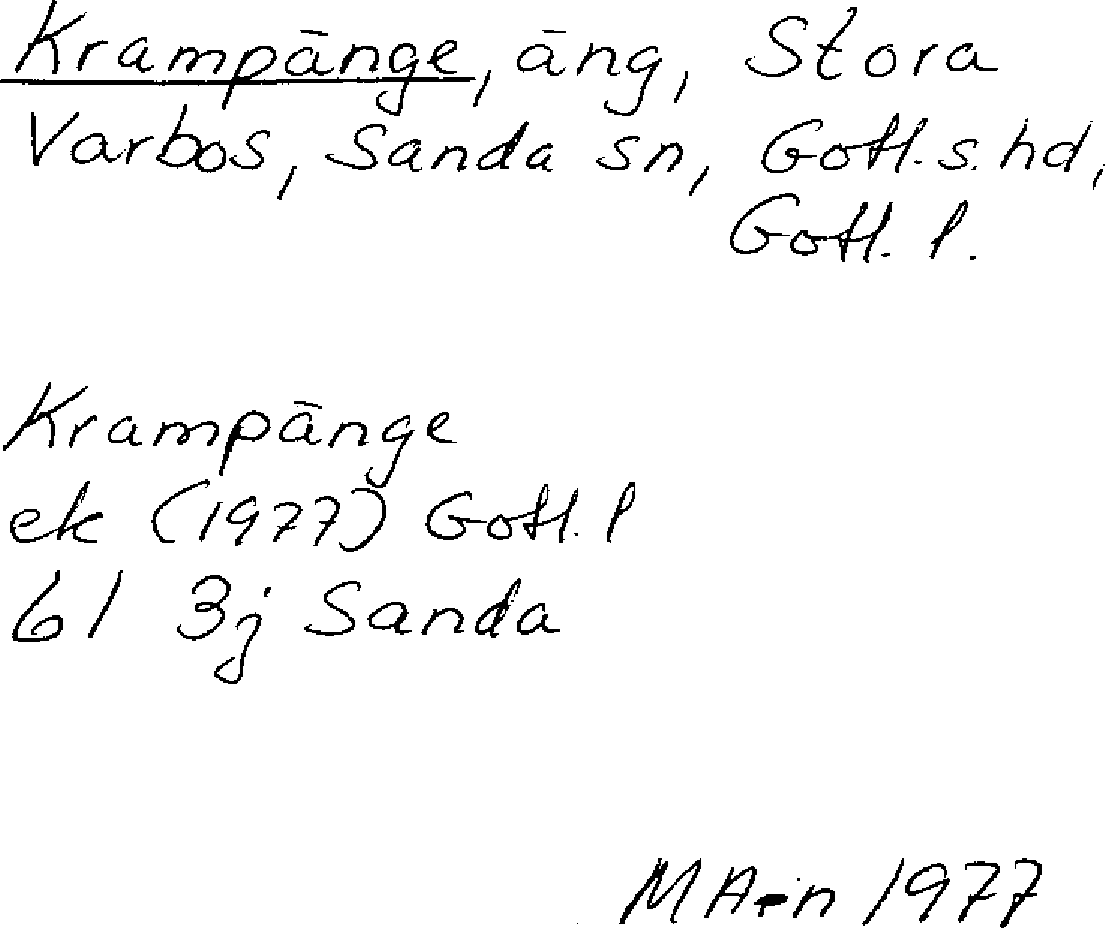 Krampänge, äng, Stora
Varbos, Sanda sn, Gotl. s. hd,
Gotl. l.
Krampänge
ek (1977) Gotl. l
61 3j Sanda
MA-n 1977